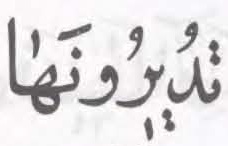 تُدِيرُونَهَا